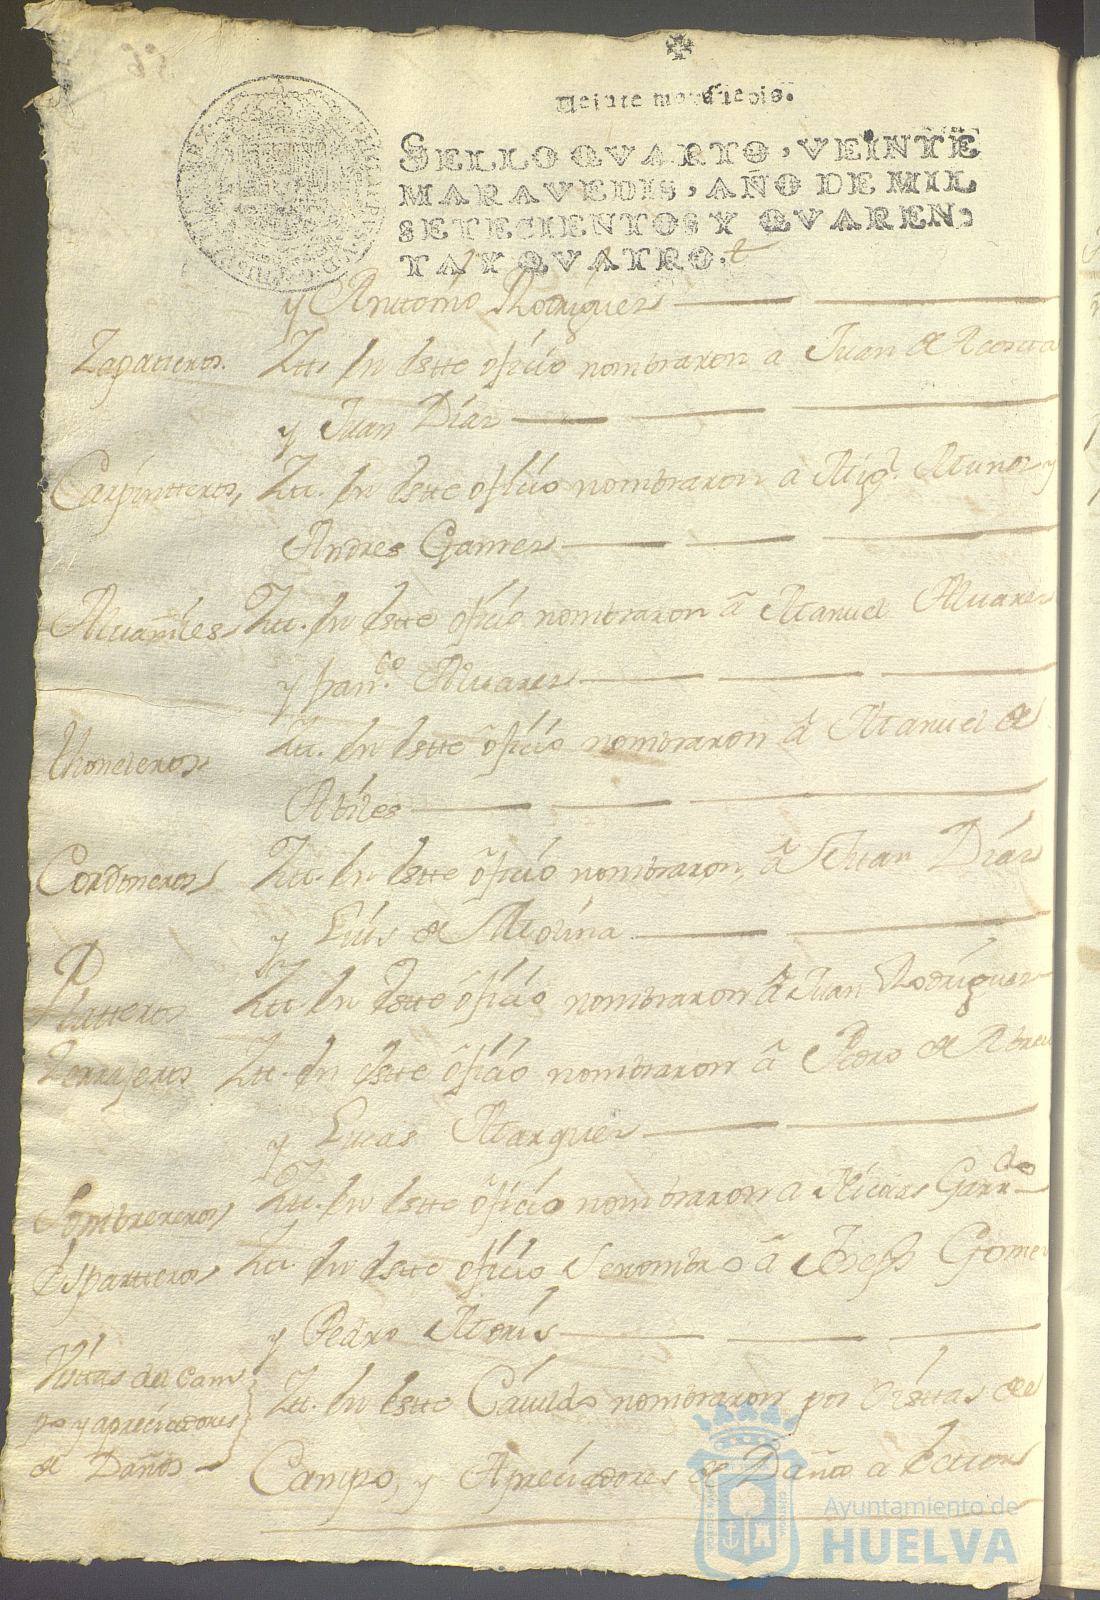 Veinte maravedis.
SELLO QVARTO, VEINTE
MARAVEDIS, AÑO DE MIL
SETECIENTOS Y QVAREN-
TA Y QVATRO.
y Anttonio Rodriguez
Zapatteros. Ytt. En estte ofisio nombraron a Juan de Acosta
y Juan Diaz
Carpintteros, Ytt. En estte ofisio nombraron a Mig.l Munoz y
Andres Gamez
Alvañiles Ytt. En estte ofisio nombraron a Manuel Alvarez
y fran.co Alvarez
Thoneleros Ytt. En estte ofisio nombraron a Manuel de
Abiles
Cordoneros Ytt. En estte ofisio nombraron, a Juan Diaz
y Luis de Molina
Platteros Ytt. En estte ofisio nombraron a Juan Rodriguez
Zerrajeros Ytt. En estte ofisio nombraron a Pedro de Abreu
y Lucas Marquez
Sombrereros Ytt. En estte ofisio nombraron a Nicolas Garr.do
Espartteros Ytt. En estte ofisio Se nombro a Joseph Gomez
y Pedro
Visttas del Cam
po y apreciadores
de Daños
Ytt. En estte Cavildo nombraron por Visttas de
Campo, y Apreciadores de Daño a
Ayuntamiento de
HUELVA